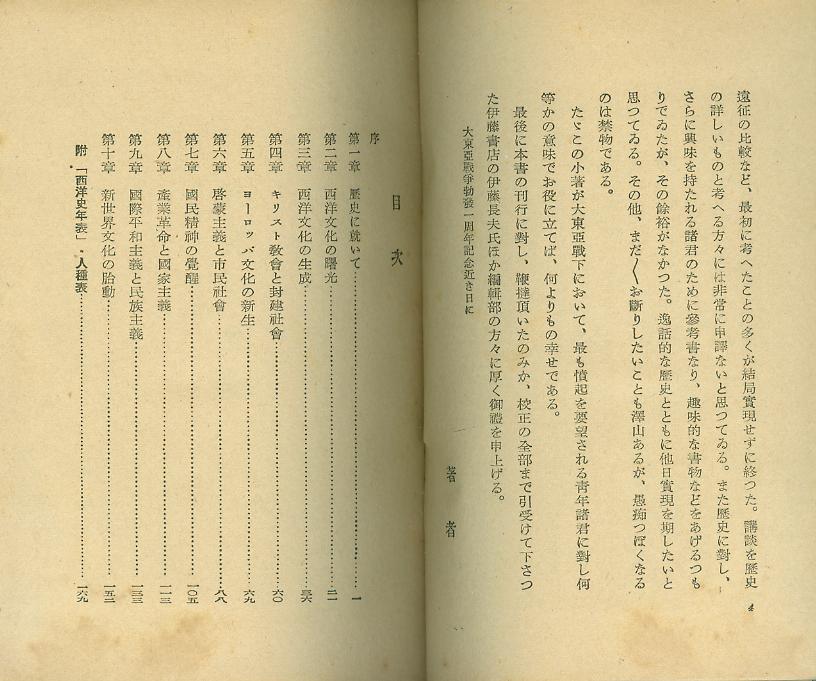 遠征の比較など、最初に考へたことの多くが結局實現せずに終つた。講談を歷史
の詳しいものと考へる方々には非常に申譯ないと思つてゐる。また歷史に對し、
さらに興味を持たれる諸君のために參考書なり、趣味的な書物などをあげるつも
りでゐたが、その餘裕がなかつた。逸話的な歷史とともに他日實現を期したいと
思つてゐる。その他、まだ〳〵お斷りしたいことも澤山あるが、愚痴つぽくなる
のは禁物である。
たゞこの小著が大東亞戰下において、最も憤起を要望される靑年諸君に對し何
等かの意味でお役に立てば、何よりもの幸せである。
最後に本書の刊行に對し、鞭撻頂いたのみか、校正の全部まで引受けて下さつ
た伊藤書店の伊藤長夫氏ほか編輯部の方々に厚く御禮を申上げる。
大東亞戰爭勃發一周年記念近き日に
著者
4
目次
序
第一章 歷史に就いて……一
第二章 西洋文化の曙光……二一
第三章 西洋文化の生成……三六
第四章 キリスト敎會と封建社會……六〇
第五章 ヨーロッパ文化の新生……六九
第六章 啓蒙主義と市民社會……八八
第七章 國民精神の覺醒……一〇五
第八章 產業革命と國家主義……一一三
第九章 國際平和主義と民族主義……一三三
第十章 新世界文化の胎動……一五二
附・「西洋史年表」・人種表……一六九